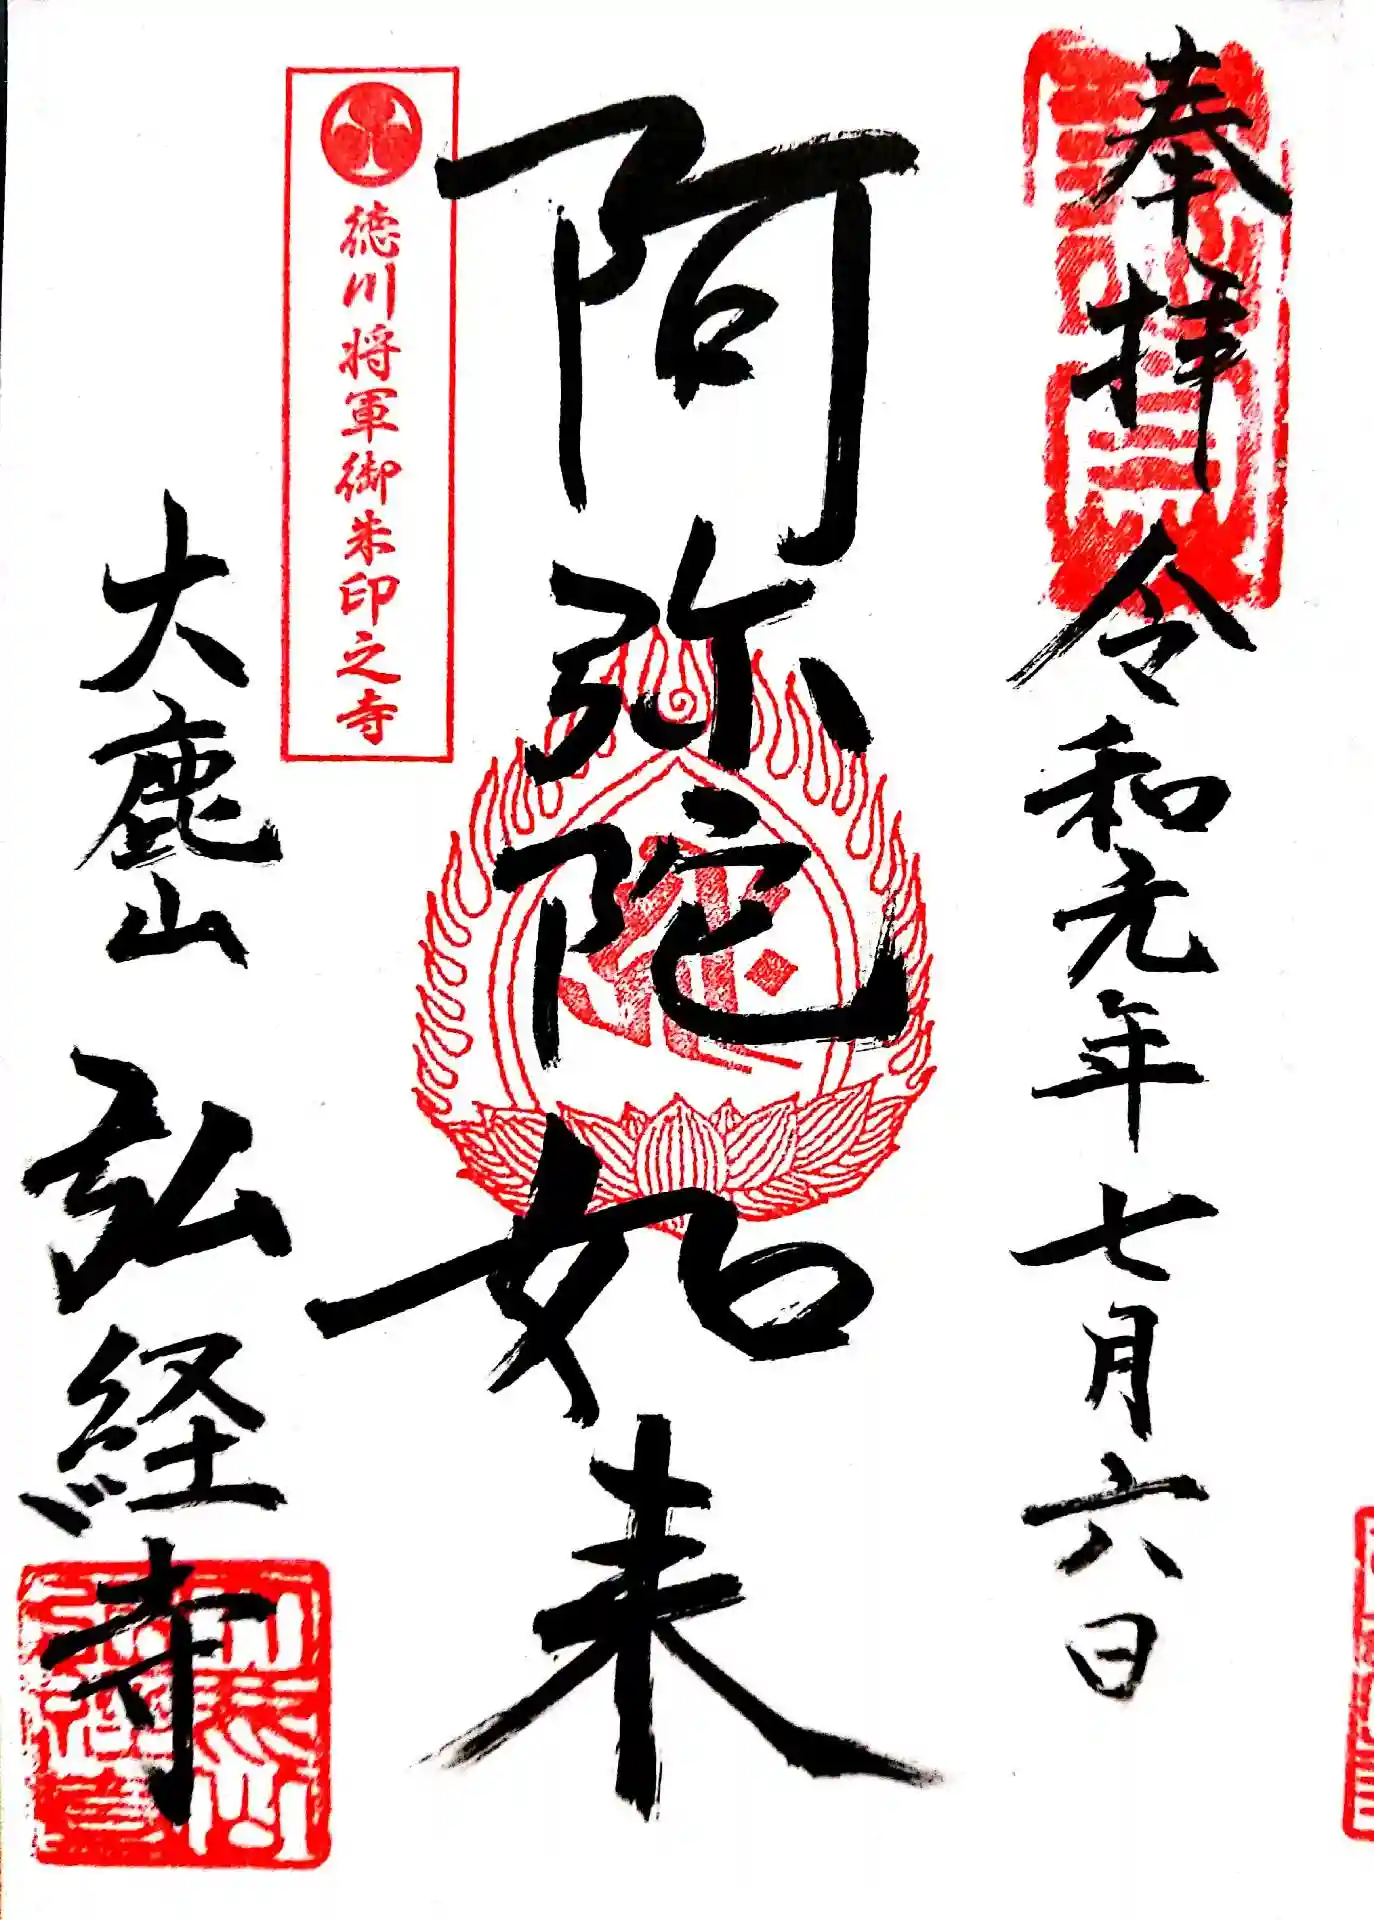 奉拝 令和元年七月六日
阿弥陀如来
徳川将軍御朱印之寺
大鹿山 弘経寺